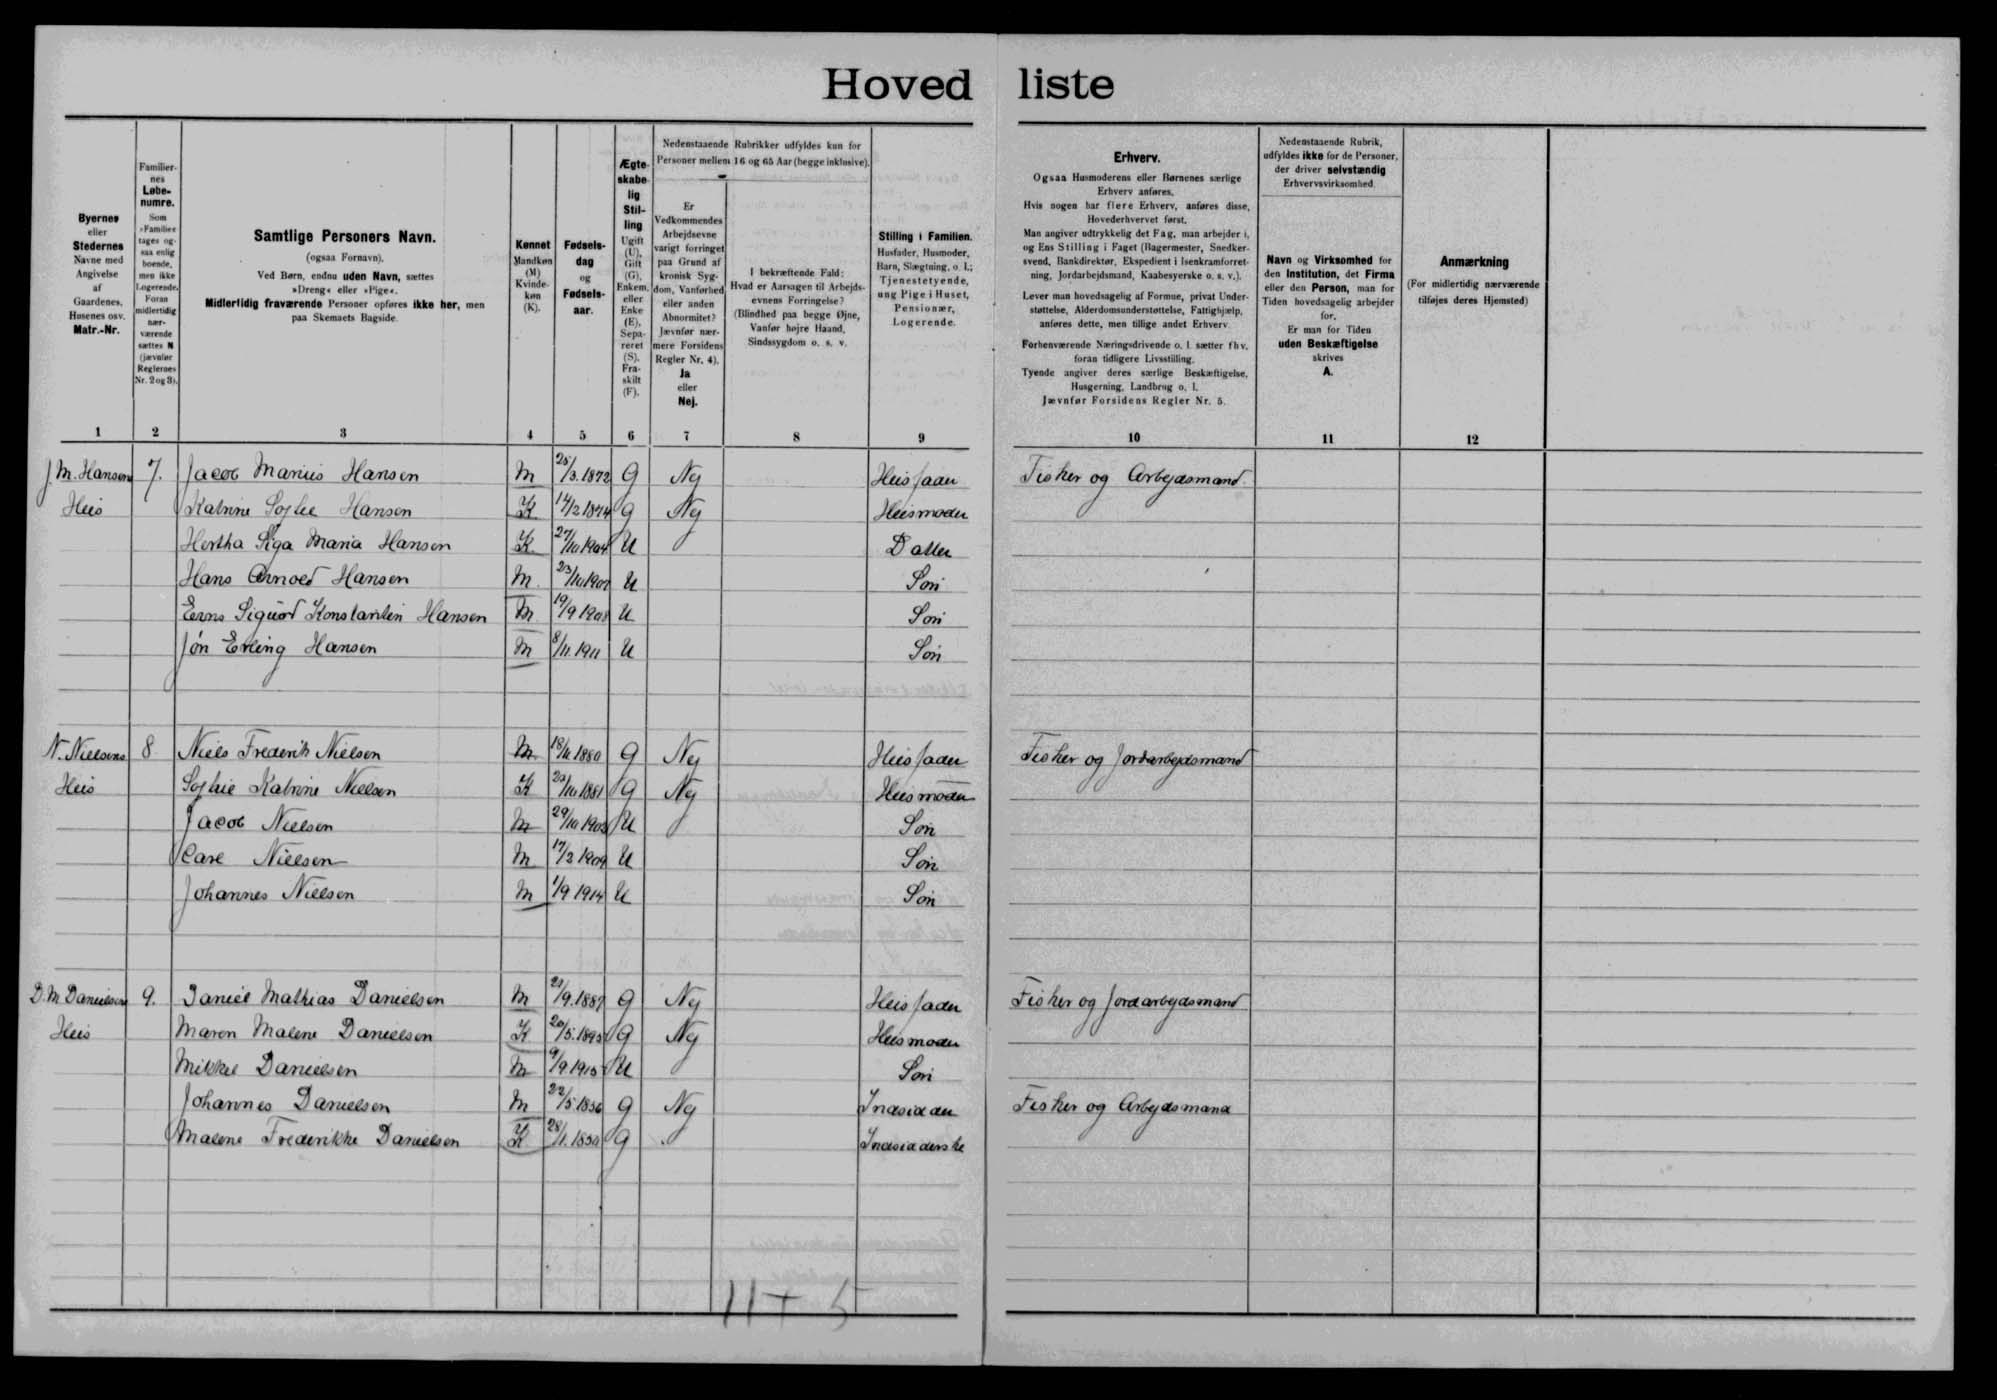 Hovedliste
Byernes
eller
Stedernes
Navne med
Angivelse
af
Gaardenes,
Husenes osv.
Matr.-Nr.
Familier-
nes
Løbe-
numre.
Som
»Familie«
tages og-
saa enlig
boende,
men ikke
Logerende.
Foran
midlertidig
nær-
værende
sættes N
(jævnfør
Reglernes
Nr. 2 og 3).
Samtlige Personers Navn.
(ogsaa Fornavn).
Ved Børn, endnu uden Navn, sættes
»Dreng« eller »Pige«.
Midlertidig fraværende Personer opføres ikke her, men
paa Skemaets Bagside.
Kønnet
Mandkøn
(M)
Kvinde-
køn
(K).
Fødsels-
dag
og
Fødsels-
aar.
Ægte-
skabe-
lig
Stil-
ling
Ugift
(U),
Gift
(G),
Enkem.
eller
Enke
(E),
Sepa-
reret
(S).
Fra-
skilt
(F).
Nedenstaaende Rubrikker udfyldes kun for
Personer mellem 16 og 65 Aar (begge inklusive).
Er
Vedkommendes
Arbejdsevne
varigt forringet
paa Grund af
kronisk Syg-
dom, Vanførhed
eller anden
Abnormitet?
Jævnfør nær-
mere Forsidens
Regler Nr. 4).
Ja
eller
Nej.
I bekræftende Fald:
Hvad er Aarsagen til Arbejds-
evnens Forringelse?
(Blindhed paa begge Øjne,
Vanfør højre Haand,
Sindssygdom o. s. v.
Stilling i Familien.
Husfader, Husmoder,
Barn, Slægtning, o. l.;
Tjenestetyende,
ung Pige i Huset,
Pensionær,
Logerende.
Erhverv.
Ogsaa Husmoderens eller Børnenes særlige
Erhverv anføres.
Hvis nogen har flere Erhverv, anføres disse,
Hovederhvervet først.
Man angiver udtrykkelig det Fag, man arbejder i,
og Ens Stilling i Faget (Bagermester, Snedker-
svend, Bankdirektør, Ekspedient i Isenkramforret-
ning, Jordarbejdsmand, Kaabesyerske o. s. v.).
Lever man hovedsagelig af Formue, privat Under-
støttelse, Alderdomsunderstøttelse, Fattighjælp,
anføres dette, men tillige andet Erhverv.
Forhenværende Næringsdrivende o. l. sætter fhv.
foran tidligere Livsstilling.
Tyende angiver deres særlige Beskæftigelse,
Husgerning, Landbrug o. l.
Jævnfør Forsidens Regler Nr. 5.
Nedenstaaende Rubrik,
udfyldes ikke for de Personer,
der driver selvstændig
Erhvervsvirksomhed.
Navn og Virksomhed for
den Institution, det Firma
eller den Person, man for
Tiden hovedsagelig arbejder
for.
Er man for Tiden
uden Beskæftigelse
skrives
A.
Anmærkning
(For midlertidig nærværende
tilføjes deres Hjemsted)
1 2 3 4 5 6 7 8 9 10 11 12
J. M. Hansens 7. Jacob Marius Hansen M 25/3.1872 G Nej Husfader Fisker og Arbejdsmand.
Hus Katrine Sophie Hansen K 14/2 1874 G Nej Husmoder
Hertha Siga Maria Hansen K. 27/10 1904 U Datter
Hans Arnold Hansen M. U Søn
Sigurd Konstantin Hansen M 19/9 1908 U Søn
Jón Erling Hansen M 8/11.1911 U Søn
N. Nielsens 8 Niels Frederik Nielsen M 18/11.1880 G Nej Husfader Fisker og Jordarbejdsmand
Hus Sophie Katrine Nielsen K G Nej Husmoder
Jacob Nielsen M U Søn
Carl Nielsen M 17/2 1909 U Søn
Johannes Nielsen M 1/9 1914 U Søn
D. M Danielsens 9. Daniel Mathias Danielsen M G Nej Husfader Fisker og Jordarbejdsmand
Hus Maren Malene Danielsen K 20/5.1895 G Nej Husmoder
Mikkel Danielsen M 9/9 1915 U Søn
Johannes Danielsen M 22/5 1856 G Nej Indsidder Fisker og Arbejdsmand
Malene Frederikke Danielsen K 28/1.1850 G Indsidderske
11 + 5